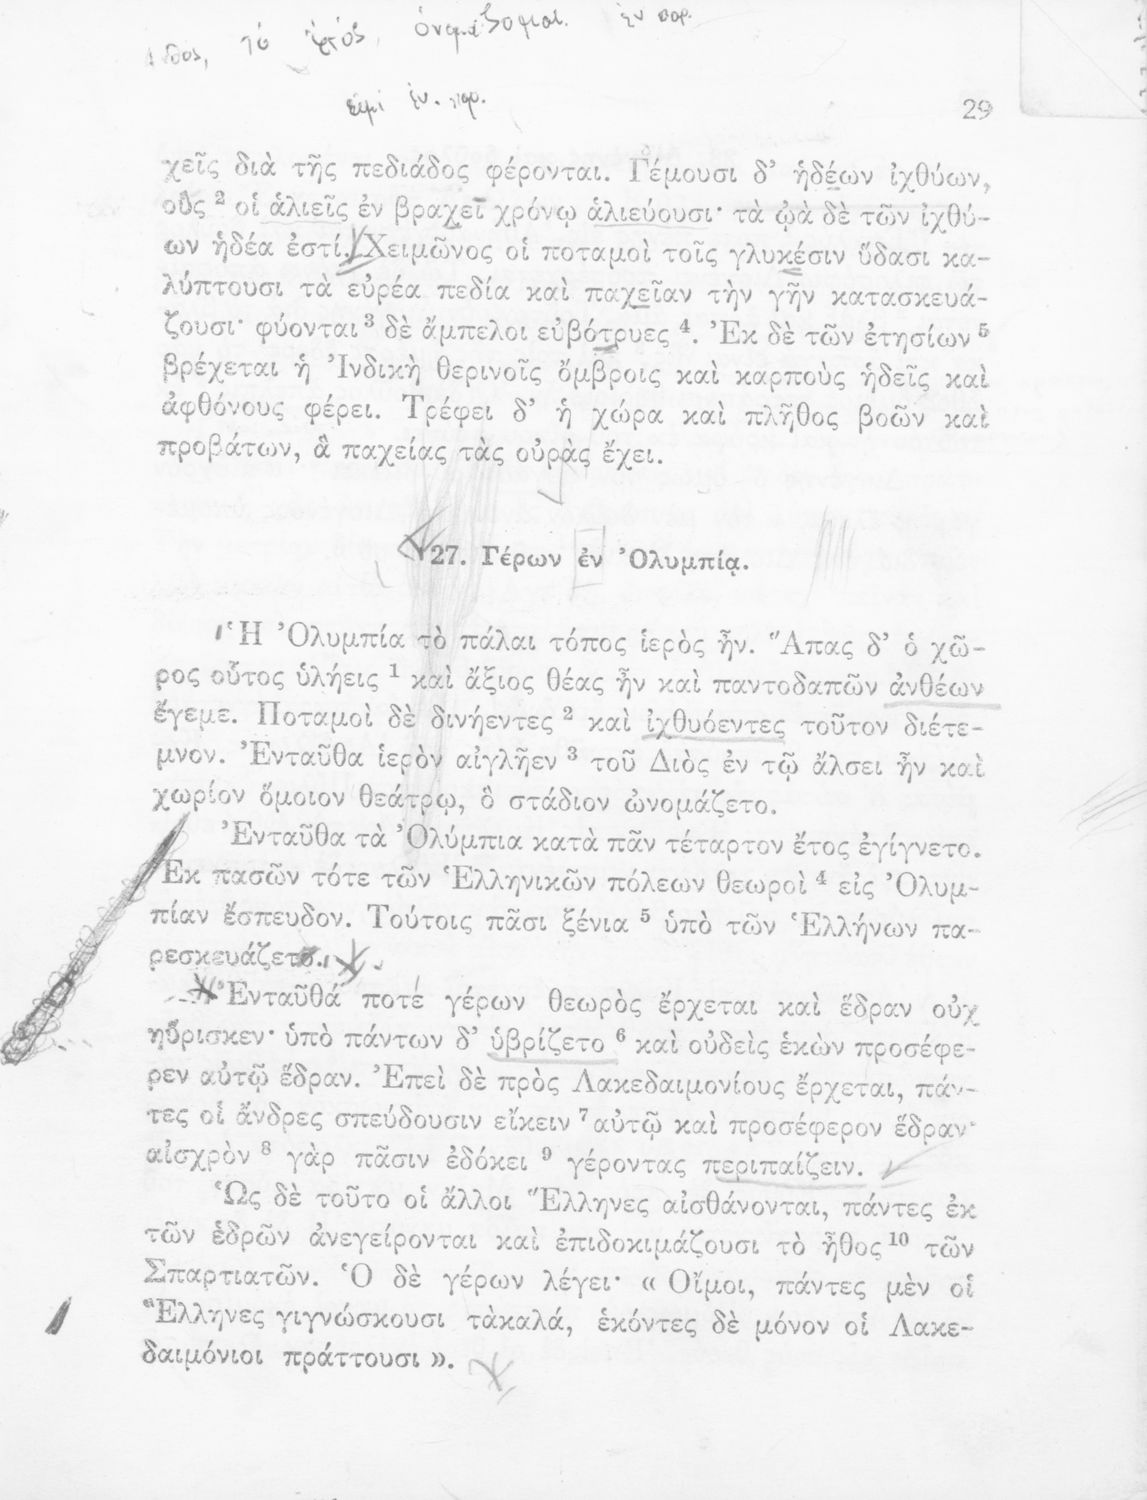 τὸ
ἐν παρ.
εἰμί ἐν. παρ.
29
χεῖς διὰ τῆς πεδιάδος φέρονται. Γέμουσι δ’ ἡδέων ἰχθύων,
οὓς 2 οἱ ἁλιεῖς ἐν βραχεῖ χρόνῳ ἁλιεύουσι· τὰ ᾠὰ δὲ τῶν ἰχθύ-
ων ἡδέα ἐστί. Χειμῶνος οἱ ποταμοὶ τοῖς γλυκέσιν ὕδασι κα-
λύπτουσι τὰ εὐρέα πεδία καὶ παχεῖαν τὴν γῆν κατασκευά-
ζουσι· φύονται 3 δὲ ἄμπελοι εὐβότρυες 4. Ἐκ δὲ τῶν ἐτησίων 5
βρέχεται ἡ Ἰνδικὴ θερινοῖς ὄμβροις καὶ καρποὺς ἡδεῖς καὶ
ἀφθόνους φέρει. Τρέφει δ’ ἡ χώρα καὶ πλῆθος βοῶν καὶ
προβάτων, ἃ παχείας τὰς οὐρὰς ἔχει.
27. Γέρων ἐν Ὀλυμπίᾳ.
Ἡ Ὀλυμπία τὸ πάλαι τόπος ἱερὸς ἦν. Ἅπας δ’ ὁ χῶ-
ρος οὗτος ὑλήεις 1 καὶ ἄξιος θέας ἦν καὶ παντοδαπῶν ἀνθέων
ἔγεμε. Ποταμοὶ δὲ δινήεντες 2 καὶ ἰχθυόεντες τοῦτον διέτε-
μνον. Ἐνταῦθα ἱερὸν αἰγλῆεν 3 τοῦ Διὸς ἐν τῷ ἄλσει ἦν καὶ
χωρίον ὅμοιον θεάτρῳ, ὃ στάδιον ὠνομάζετο.
Ἐνταῦθα τὰ Ὀλύμπια κατὰ πᾶν τέταρτον ἔτος ἐγίγνετο.
Ἐκ πασῶν τότε τῶν Ἑλληνικῶν πόλεων θεωροὶ 4 εἰς Ὀλυμ-
πίαν ἔσπευδον. Τούτοις πᾶσι ξένια 5 ὑπὸ τῶν Ἑλλήνων πα-
ρεσκευάζετο.
Ἐνταῦθά ποτέ γέρων θεωρὸς ἔρχεται καὶ ἕδραν οὐχ
ηὕρισκεν· ὑπὸ πάντων δ’ ὑβρίζετο 6 καὶ οὐδεὶς ἑκὼν προσέφε-
ρεν αὐτῷ ἕδραν. Ἐπεὶ δὲ πρὸς Λακεδαιμονίους ἔρχεται, πάν-
τες οἱ ἄνδρες σπεύδουσιν εἴκειν 7 αὐτῷ καὶ προσέφερον ἕδραν·
αἰσχρὸν 8 γὰρ πᾶσιν ἐδόκει 9 γέροντας περιπαίζειν.
Ὡς δὲ τοῦτο οἱ ἄλλοι Ἕλληνες αἰσθάνονται, πάντες ἐκ
τῶν ἑδρῶν ἀνεγείρονται καὶ ἐπιδοκιμάζουσι τὸ ἦθος 10 τῶν
Σπαρτιατῶν. Ὁ δὲ γέρων λέγει· « Οἴμοι, πάντες μὲν οἱ
Ἕλληνες γιγνώσκουσι τὰ καλά, ἑκόντες δὲ μόνον οἱ Λακε-
δαιμόνιοι πράττουσι ».